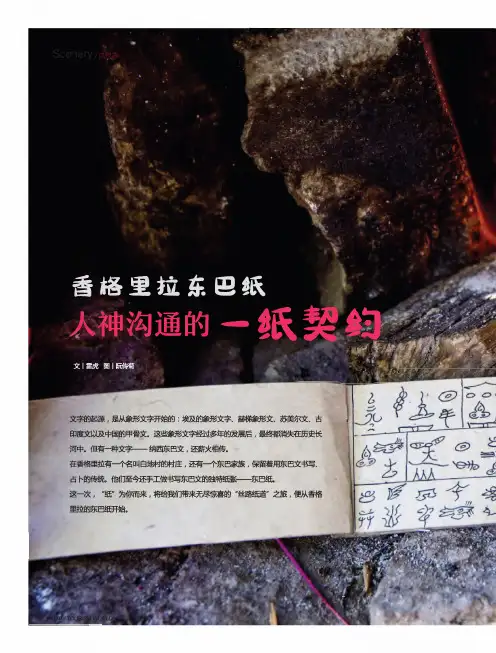 Scenery
香格里拉东巴纸
人神沟通的一纸契约
文 | 雷虎 图 | 阮传菊
文字的起源，是从象形文字开始的：埃及的象形文字、赫梯象形文、苏美尔文、古
印度文以及中国的甲骨文。这些象形文字经过多年的发展后，最终都消失在历史长
河中。但有一种文字——纳西东巴文，还薪火相传。
在香格里拉有一个名叫白地村的村庄，还有一个东巴家族，保留着用东巴文书写、
占卜的传统。他们至今还手工做书写东巴文的独特纸张——东巴纸。
这一次，“纸”为你而来，将给我们带来无尽惊喜的“丝路纸道”之旅，便从香格
里拉的东巴纸开始。